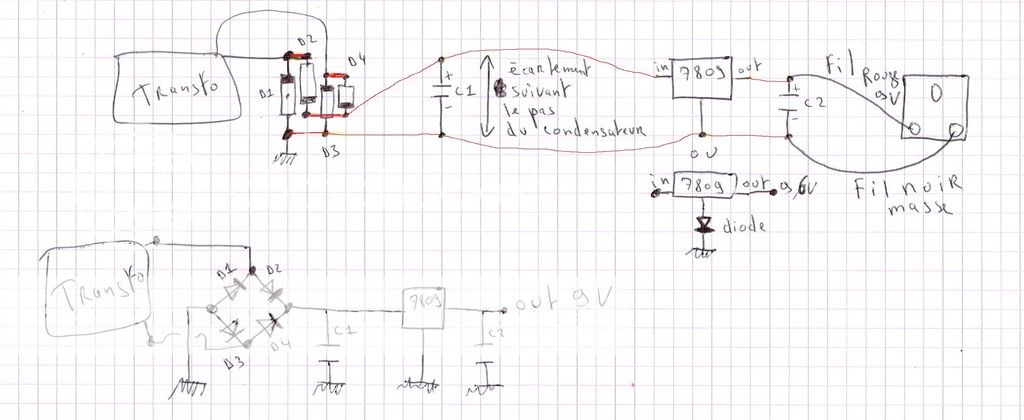 D2
D4
Transfo
D1
D3
+
C1
-
écartement
suivant
le pas
du condensateur
in
7809
out
0V
+
C2
-
Fil Rouge
9V
Fil noir
masse
in
7809
out 9,6V
diode
Transfo
D1
D2
D3
D4
C1
7809
C2
out 9V